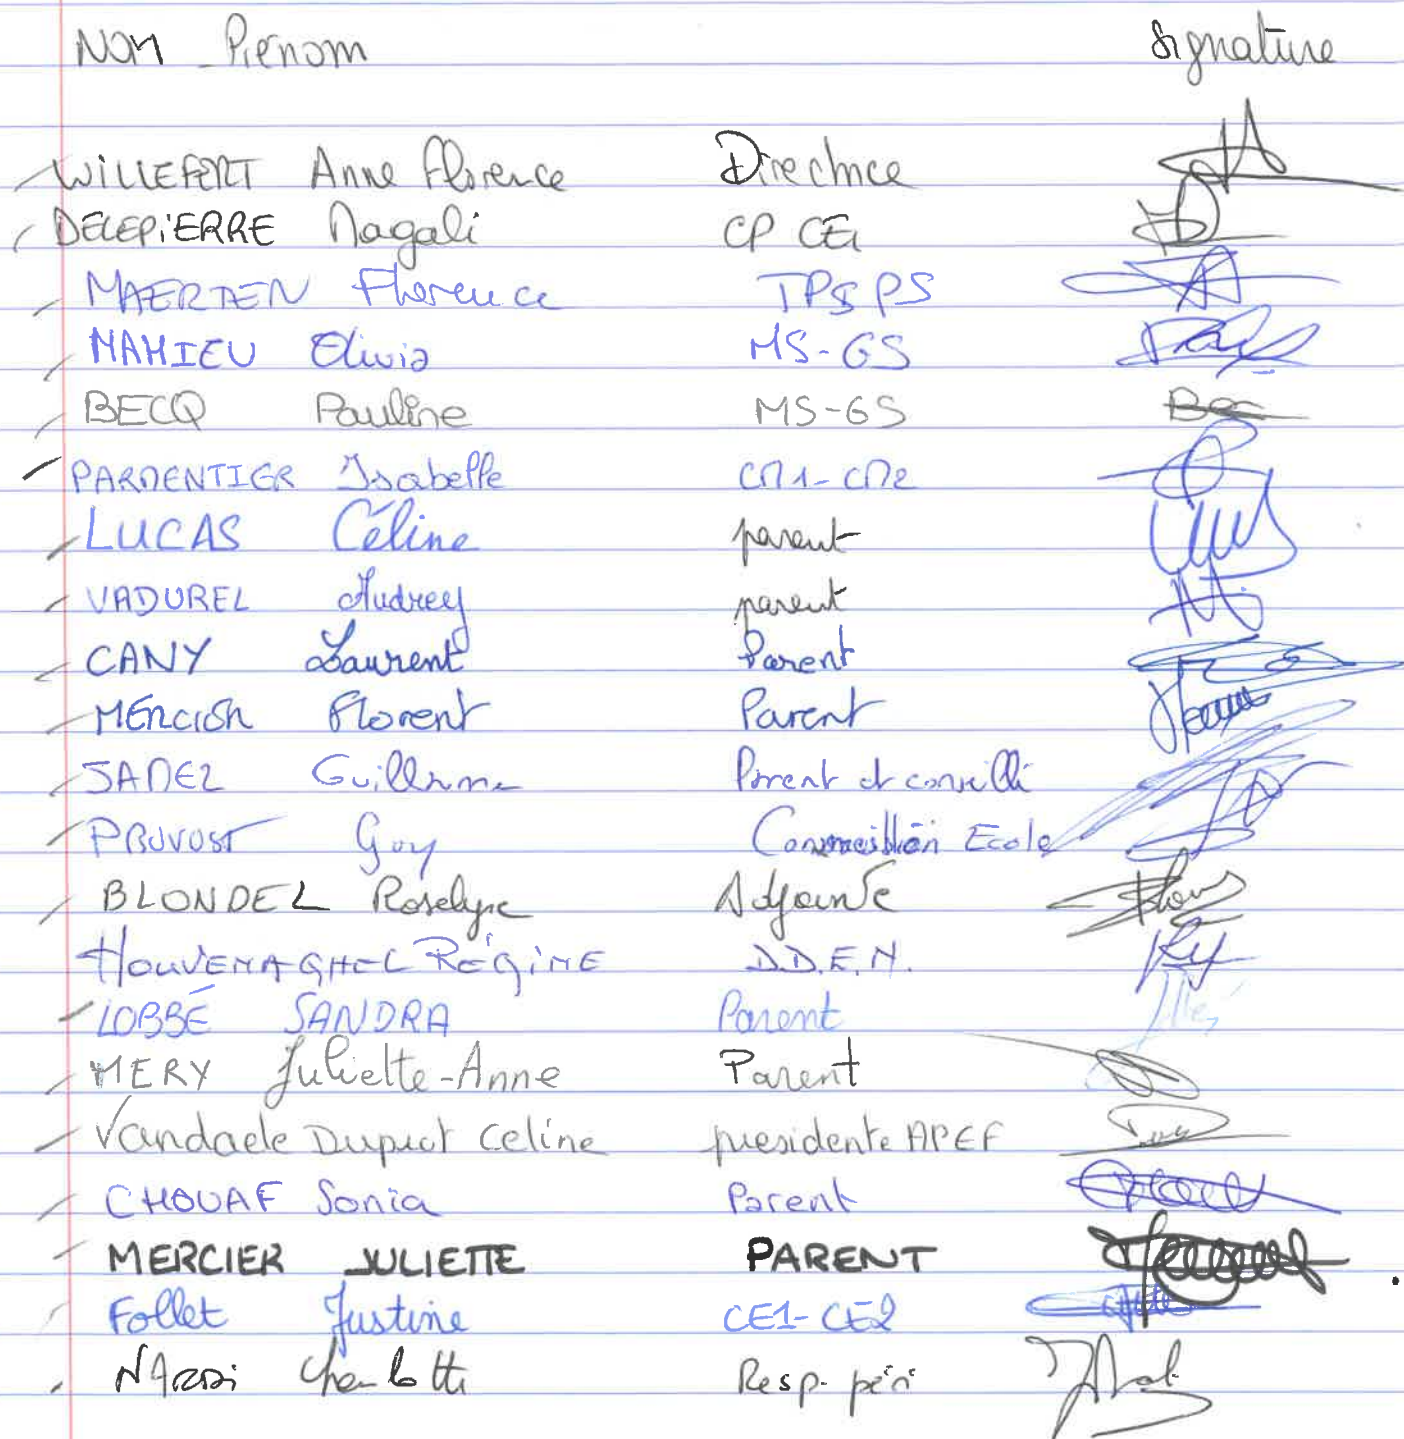 NOM Prénom Signature
WILLEFERT Anne Florence Directrice
DELEPiERRE Magali CP CE1
MAERTEN Florence TPS PS
MAHIEU Olivia MS-GS
BECQ Pauline MS-GS
PARMENTIER Isabelle CM1-CM2
LUCAS Céline parent
VADUREL Audrey parent
CANY Laurent Parent
MERCIER Florent Parent
Guillaume Parent et conseillé
PRUVOST Guy Ecole
BLONDEL Roselyne Adjointe
HOUVENAGHEL RÉGINE D.D.E.N.
LOBBÉ SANDRA Parent
MERY Juliette-Anne Parent
Vandaele Dupuot Celine presidente APEF
CHOUAF Sonia Parent
MERCIER JULIETTE PARENT
Follet Justine CE1-CE2
NARDI Charlotte Resp. péri